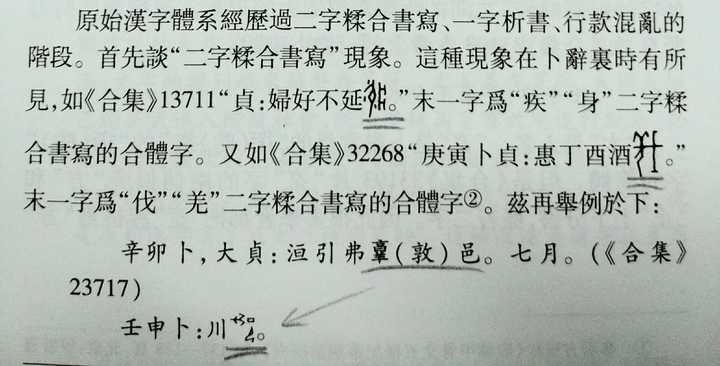 原始漢字體系經歷過二字糅合書寫、一字析書、行款混亂的
階段。首先談“二字糅合書寫”現象。這種現象在卜辭裏時有所
見,如《合集》13711“貞:婦好不延。”末一字爲“疾”“身”二字糅
合書寫的合體字。又如《合集》32268“庚寅卜貞:惠丁酉酒。”
末一字爲“伐”“羌”二字糅合書寫的合體字②。兹再舉例於下:
辛卯卜,大貞:洹引弗𦎫(敦)邑。七月。(《合集》
23717)
壬申卜:川。